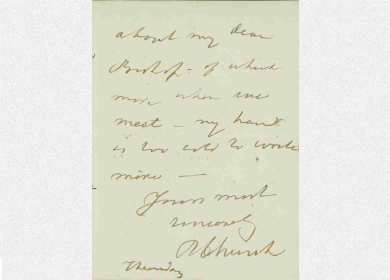 about my dear
Bishop - of which
more when we
meet - my hand
is too cold to write
more -
Yours most
sincerely
RWChurch
Thursday